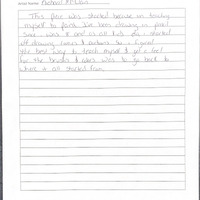 Artist Name: Michael McClain
This line was started because im teaching
myself to paint. Ive been drawing in pencil
since I was 8 and as all kids do I started
off drawing comics & cartoons. So I figured
the best way to teach myself & get a feel
for the brushes & colors was to go back to
where it all started from.